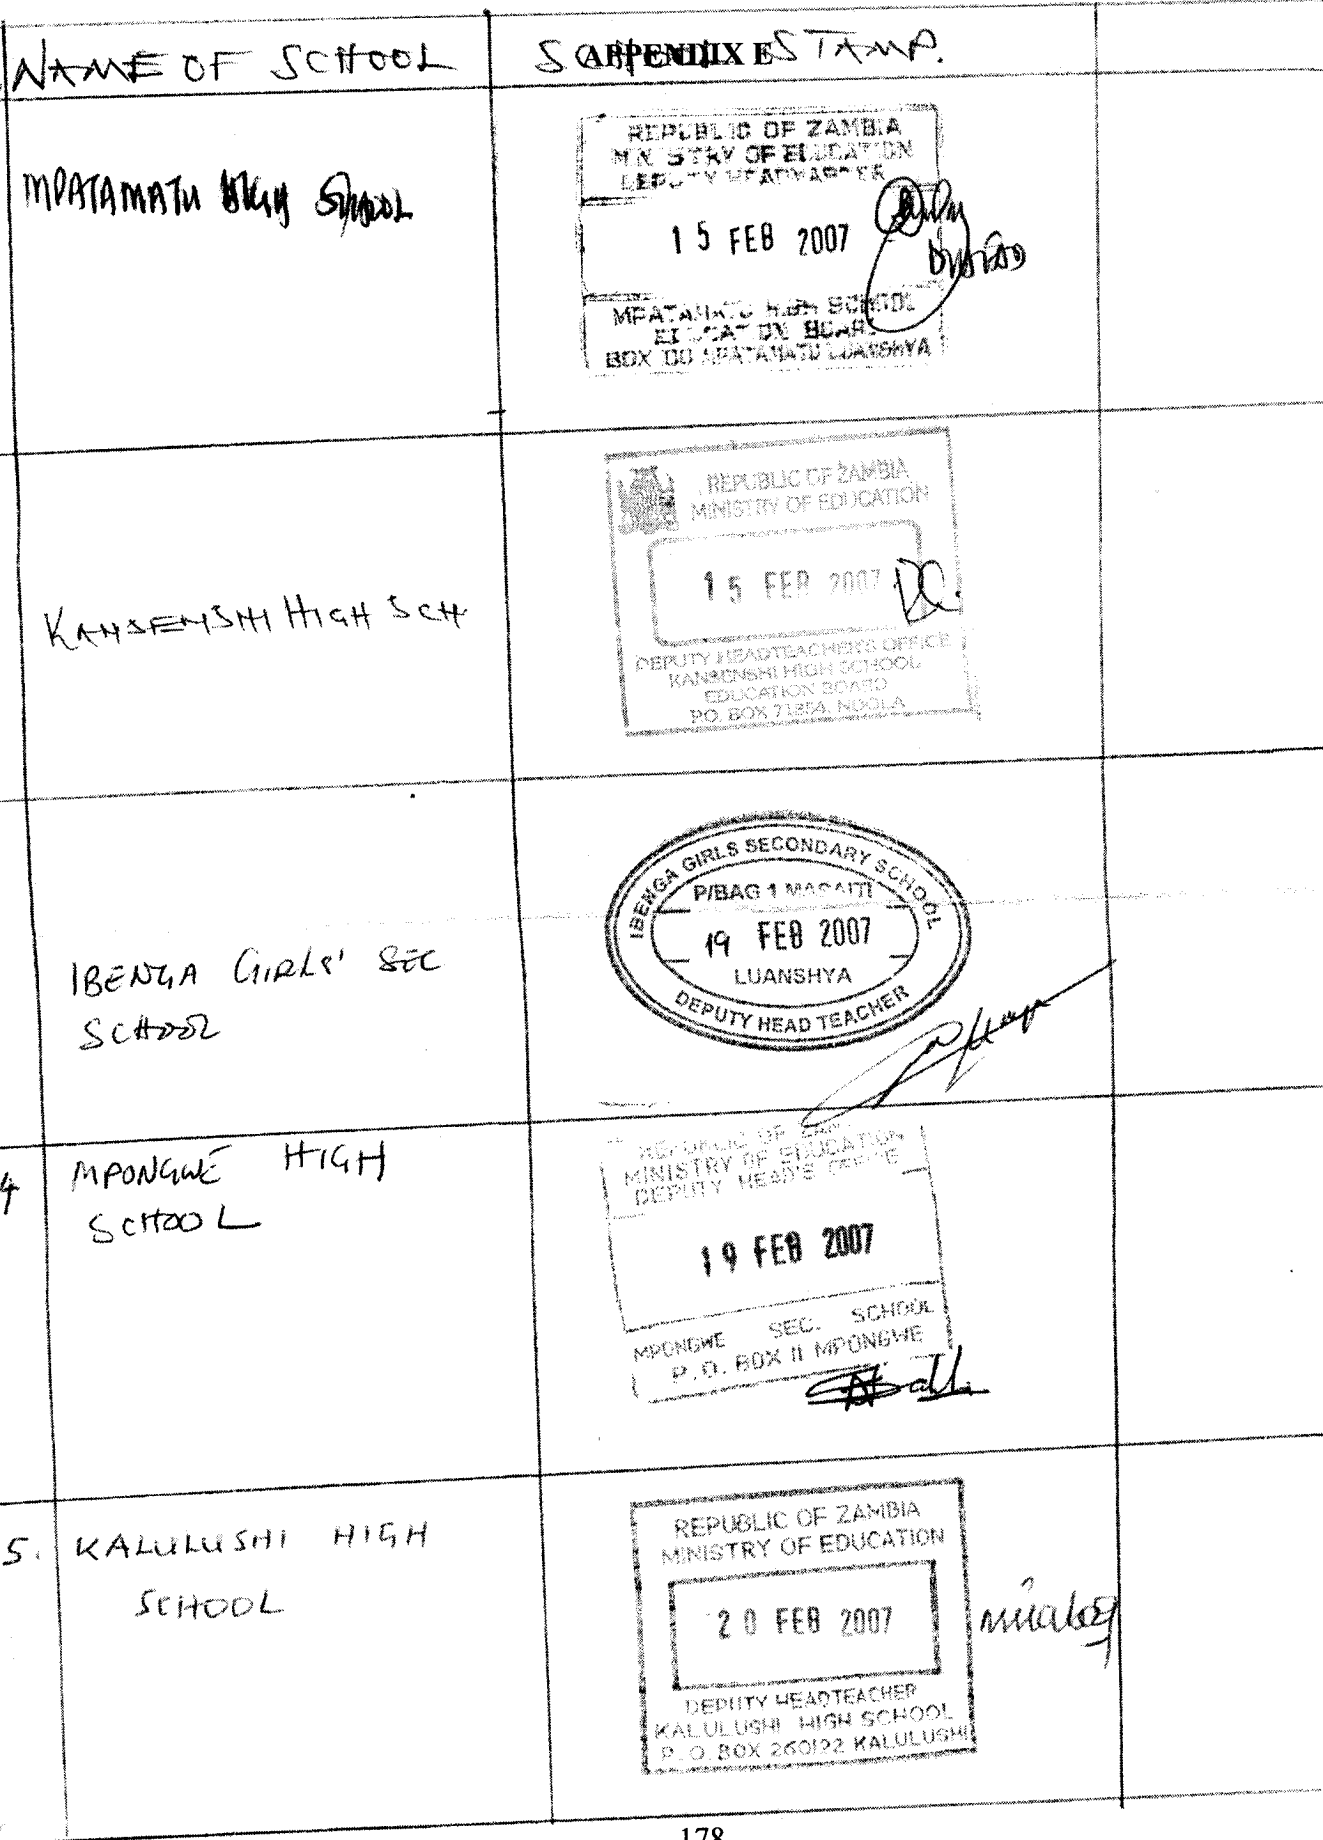 NAME OF SCHOOL
SCHOOL STAMP.
APPENDIX E
MPATAMATU HIGH SCHOOL
REPUBLIC OF ZAMBIA
MINISTRY OF EDUCATION
DEPUTY HEADMASTER
15 FEB 2007
MPATAMATU HIGH SCHOOL
EDUCATION BOARD
BOX MPATAMATU LUANSHYA
KANSENSHI HIGH SCH
REPUBLIC OF ZAMBIA
MINISTRY OF EDUCATION
15 FEB 2007
DEPUTY HEADTEACHER'S OFFICE
KANSENSHI HIGH SCHOOL
EDUCATION BOARD
P.O. BOX NDOLA
IBENGA GIRLS' SEC
SCHOOL
IBENGA GIRLS SECONDARY SCHOOL
P/BAG 1 MASAITI
19 FEB 2007
LUANSHYA
DEPUTY HEAD TEACHER
4 MPONGWE HIGH
SCHOOL
REPUBLIC OF ZAM
MINISTRY OF EDUCATION
DEPUTY HEAD'S OFFICE
19 FEB 2007
MPONGWE SEC. SCHOOL
P.O. BOX 11 MPONGWE
5. KALULUSHI HIGH
SCHOOL
REPUBLIC OF ZAMBIA
MINISTRY OF EDUCATION
20 FEB 2007
DEPUTY HEADTEACHER
KALULUSHI HIGH SCHOOL
P.O. BOX 260122 KALULUSHI
178